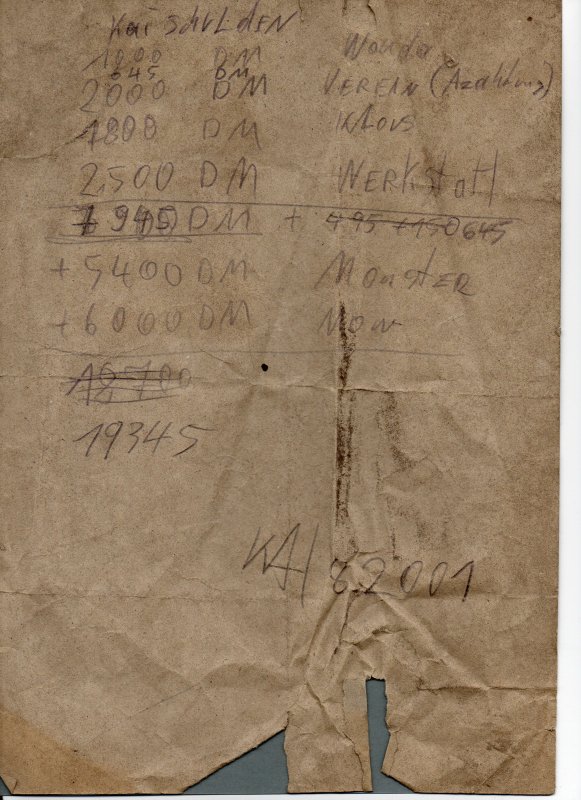 Kai SCHULDEN
1000 DM Wanda
645 DM
2000 DM VEREIN (Azahlung)
1800 DM KLAUS
2500 DM WERKstatt
7945 DM + 495 +150 645
+ 5400 DM MONSTER
+ 6000 DM
12700
19345
KAI 82001